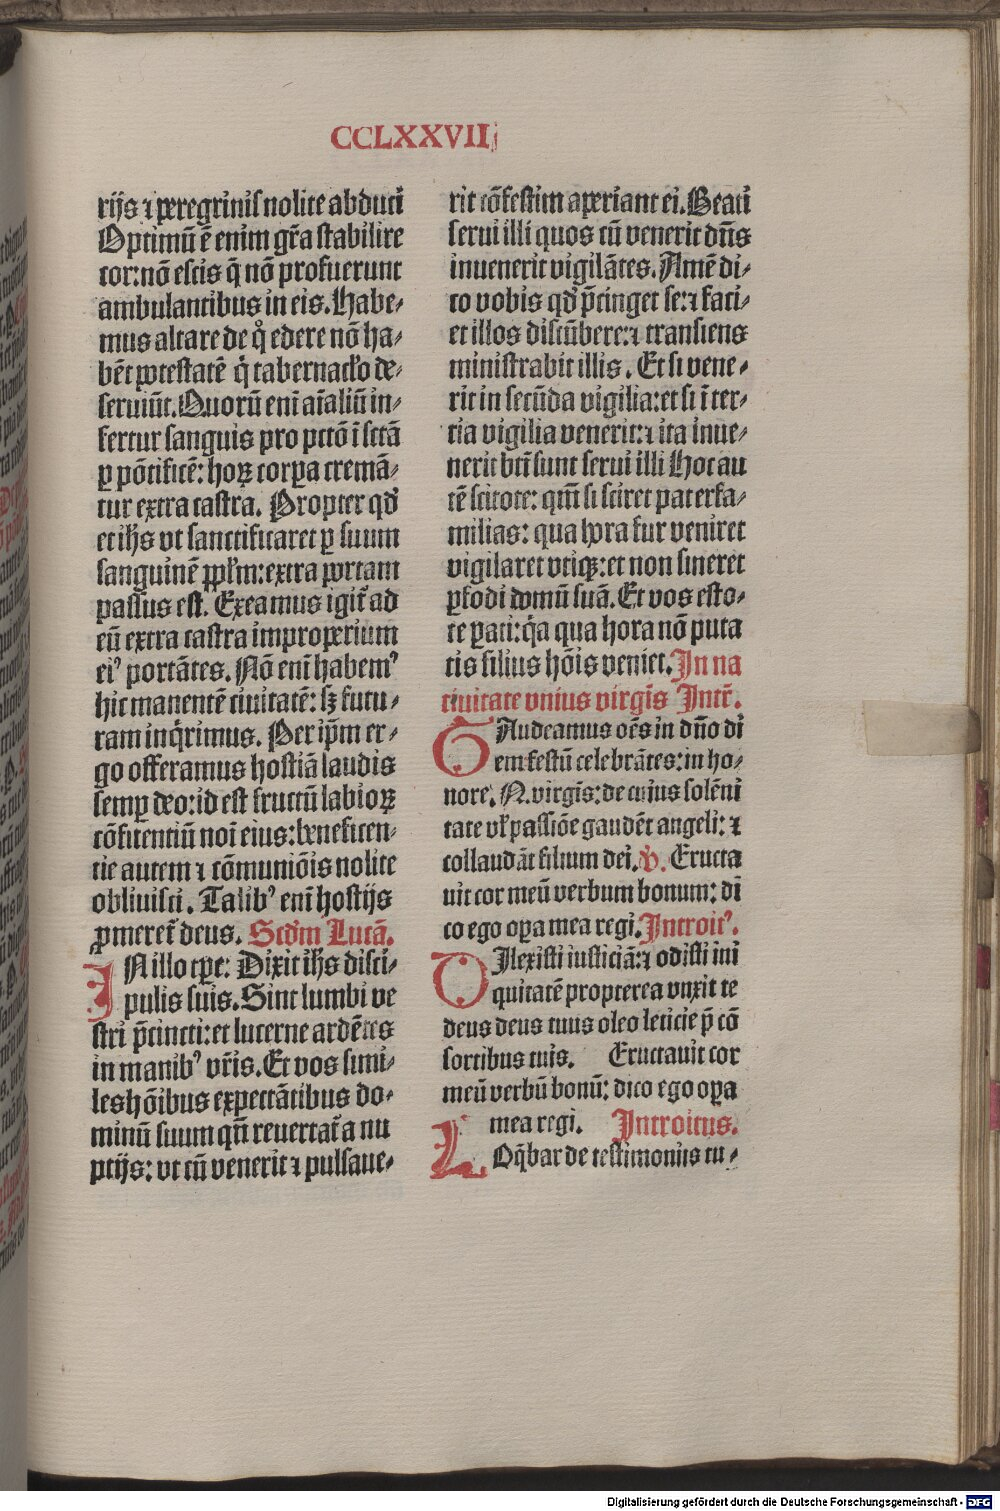 CCLXXVII
rijs ⁊ peregrinis nolite abduci
Optimū ē enim gr̄a stabilire
cor: nō escis q̄ nō profuerunt
ambulantibus in eis. Habe⸗
mus altare de qͦ edere nō ha⸗
bēt potestatē q̇ tabernacl̓o de⸗
seruiūt. Quorū enī aīaliū in⸗
fertur sanguis pro pctō ī sctā
ꝑ pōtificē: hoꝝ corꝑa cremā⸗
tur extra castra. Propter qd̓
et ih̄s vt sanctificaret ꝑ suum
sanguinē ppl̓m: extra portam
passus est. Exeamus igit̄ ad
eū extra castra improperium
ei⁹ portātes. Nō enī habem⁹
hic manentē ciuitatē: sꝫ futu⸗
ram inq̇rimus. Per ip̄m er⸗
go offeramus hostiā laudis
semꝑ deo: id est fructū labioꝝ
cōfitentiū noī eius: beneficen⸗
tie autem ⁊ cōmuniōis nolite
obliuisci. Talib⁹ enī hostijs
ꝓmeret̄ deus. Scd̓m Lucā.
IN illo tꝑe: Dixit ih̄s disci⸗
pulis suis. Sint lumbi ve
stri p̄cincti: et lucerne ardētes
in manib⁹ vr̄is. Et vos simi⸗
les hōibus expectātibus do⸗
minū suum qn̄ reuertat̄ a nu
ptijs: vt cū venerit ⁊ pulsaue⸗
rit cōfestim aperiant ei. Beati
serui illi quos cū venerit dn̄s
inuenerit vigilātes. Amē di⸗
co vobis qd̓ p̄cinget se: ⁊ faci⸗
et illos discūbere: ⁊ transiens
ministrabit illis. Et si vene⸗
rit in secūda vigilia: et si ī ter⸗
cia vigilia venerit: ⁊ ita inue⸗
nerit bt̄i sunt serui illi Hoc au
tē scitote: qm̄ si sciret paterfa⸗
milias: qua hora fur veniret
vigilaret vtiqꝫ: et non sineret
ꝑfodi domū suā. Et vos esto⸗
te ꝑati: q̇a qua hora nō puta
tis filius hōis veniet. In na
tiuitate vnius virgīs Intr̄.
GAudeamus oēs in dn̄o di
em festū celebrātes: in ho⸗
nore. N. virgīs: de cuius solēni
tate vl̓ passiōe gaudēt angeli: ⁊
collaudāt filium dei. ℣. Eructa
uit cor meū verbum bonum: di
co ego oꝑa mea regi. Introit⁹.
DIlexisti iusticiā: ⁊ odisti ini
quitatē propterea vnxit te
deus deus tuus oleo leticie p̄ cō
sortibus tuis. Eructauit cor
meū verbū bonū: dico ego oꝑa
mea regi. Introitus.
LOq̄bar de testimoniis tu⸗
Digitalisierung gefördert durch die Deutsche Forschungsgemeinschaft - DFG